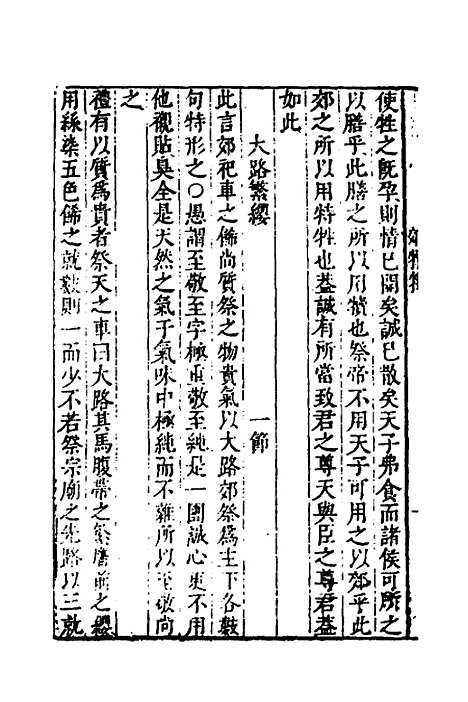 使牲之旣孕則情已開矣誠已散矣天子弗食而諸侯可所之
以膳乎此膳之所以用犢也祭帝不用天子可用之以郊乎此
郊之所以用特牲也蓋誠有所當致君之尊天與臣之尊君蓋
如此
大路繁纓 一節
此言郊祀車之俻尚質祭之物貴氣以大路郊祭爲主下各數
句特形之〇愚謂至敬至字極重敬至純是一團誠心更不用
他襯貼臭全是天然之氣于氣味中極純而不雜所以至敬向
之
禮有以質爲貴者祭天之車曰大路其馬腹帶之繁膺前之纓
用絲染五色俻之就數則一而少不若祭宗廟之先路以三就